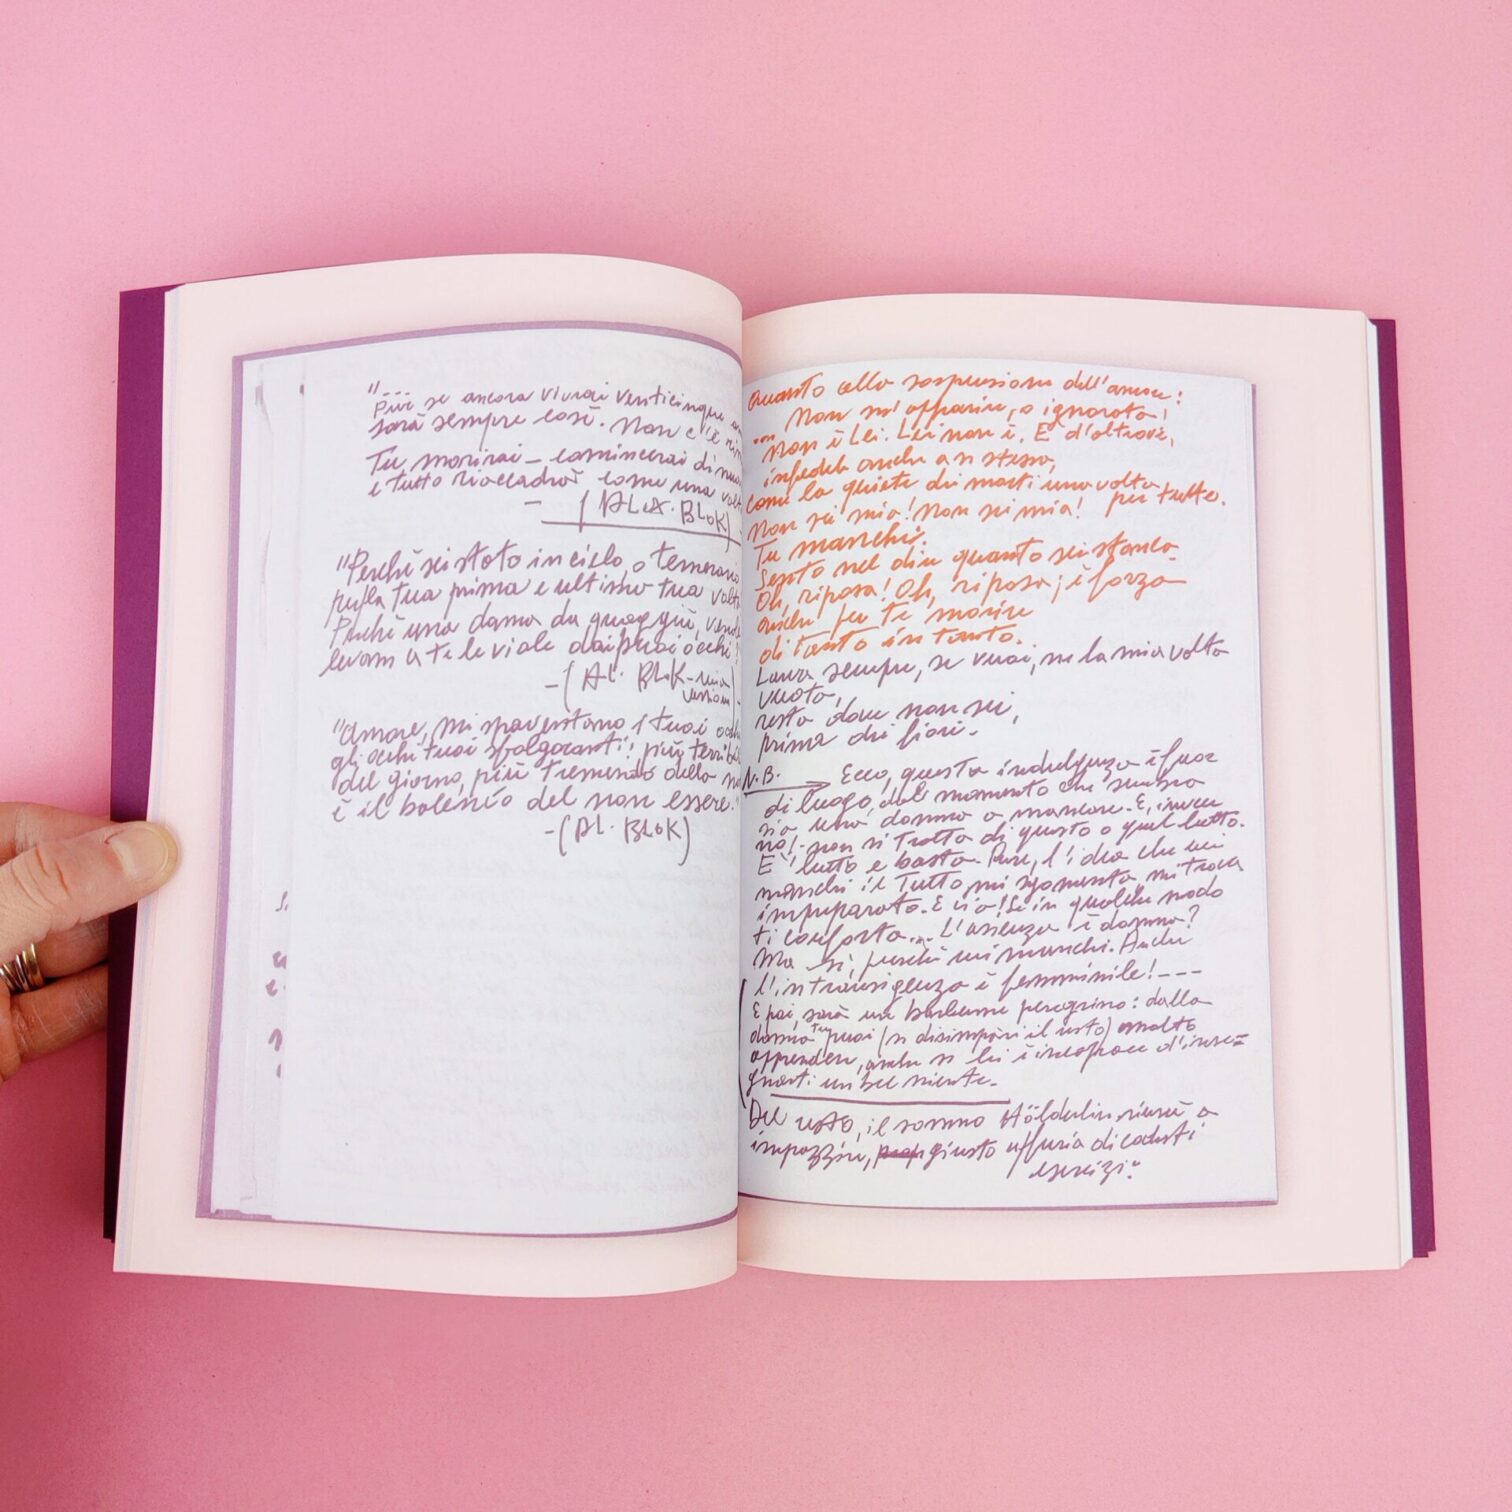 "... 
Pur se ancora vivrai venticinque an
sarà sempre così. Non c'è
Tu morirai – comincerai di nuo
e tutto riaccadrà come una volt
– (ALEX. BLOK)
"Perché sei stato in cielo, o temerario
nella tua prima e ultima tua volta
Perché una dama da quaggiù, vende
levam a te le viole dai suoi occhi!
– (AL. BLOK – mia
versione) –
"Amore, mi spaventano i tuoi occhi
gli occhi tuoi sfolgoranti! più terribi
del giorno, più tremendo della no
è il baleno del non essere."
– (AL. BLOK)
Quanto alla sospensione dell'amore:
... Non m'apparire, o ignorata!
Non è Lei. Lei non è. È d'altrove,
infedele anche a se stessa,
come la quiete dei morti una volta
per tutte.
Non sei mia! Non sei mia!
Tu manchi.
Sento nel dire quanto sei stanca
Oh, riposa! Oh, riposa; è forza
anche per te morire
di tanto in tanto.
Laura sempre, se vuoi, ne la mia volta
vuota,
resta dove non sei,
prima dei fiori.
N.B. → Ecco, questa indulgenza è fuor
di luogo, dal momento che sembra
sia una donna a mancare. E, invece
no! non si tratta di questo o quel lutto.
È 'lutto e basta. Pure, l'idea che mi
manchi il Tutto mi sgomenta mi trova
impreparato. E sia! Se in qualche modo
ti conforta... L'assenza è donna?
Ma sì, perché mi manchi. Anche
l'intransigenza è femminile! ---
E poi, sarà un barbarume peregrino: dalla
donna tu puoi (si disimpari il resto) molto
apprendere, anche se lei è incapace d'inse=
gnarti un bel niente.
Del resto, il sommo Hölderlin riuscì a
impazzire, giusto a furia di codesti
esercizi.